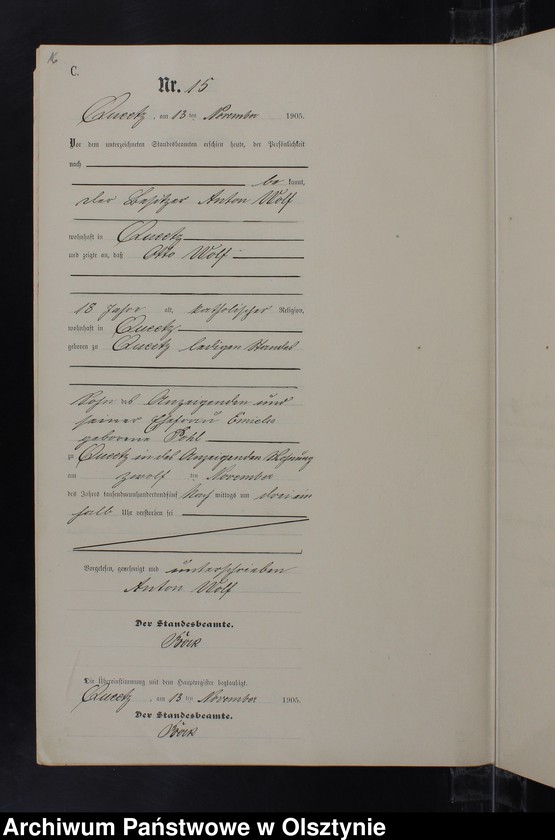 16
C.
Nr. 15
Queetz, am 13 ten November 1905.
Vor dem unterzeichneten Standesbeamten erschien heute, der Persönlichkeit
nach
be kannt,
der Besitzer Anton Wolf
wohnhaft in Queetz
und zeigte an, daß Otto Wolf
18 Jahre alt, katholischer Religion,
wohnhaft in Queetz
geboren zu Queetz ledigen Standes
Sohn des Anzeigenden und
seiner Ehefrau
geborene Pohl
zu Queetz in des Anzeigenden Wohnung
am zwölf ten November
des Jahres tausendneunhundertundfünf Nach mittags um drei ein
halb Uhr verstorben sei
Vorgelesen, genehmigt und unterschrieben
Anton Wolf
Der Standesbeamte.
Die Übereinstimmung mit dem Hauptregister beglaubigt.
Queetz, am 13 ten November 1905.
Der Standesbeamte.
Archiwum Państwowe w Olsztynie